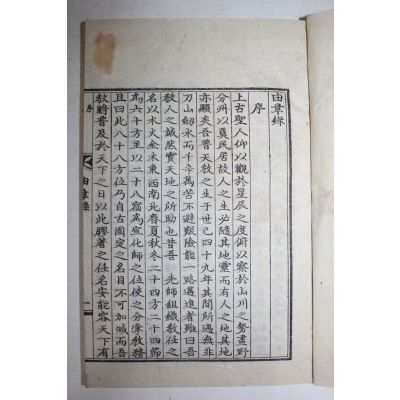 由章錄
序
上古聖人仰以觀於星辰之度俯以察於山川之勢畫野
分州以奠民居故人之生必隨其地靈而有人之地其地
亦顯矣吾晋天敎之生于世已四十九年其間所遇無非
刀山劒水而千辛萬苦不避艱險能一路邁進者雖曰吾
敎人之誠然實天地之所助也昔吾 先師組織敎任之
名以水火金木東西南北春夏秋冬二十四方二十四節
爲六十方至以二十八宿爲宣化師之位使之分掌敎務
且曰此八十八方位乃自古固定之名目不可加減而吾
敎將普及於天下之日以此膠著之任名安能容天下有
序
由章錄
一